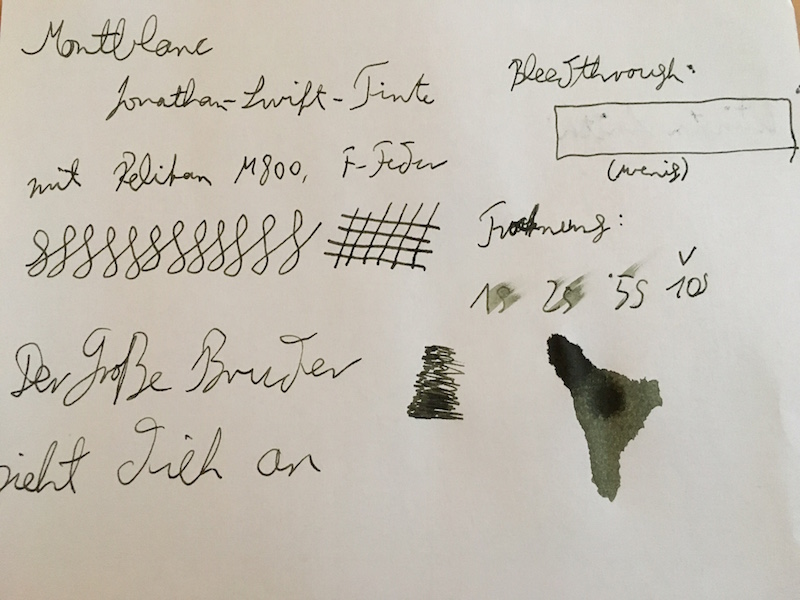 Montblanc
Jonathan-Swift-Tinte
mit Pelikan M800, F-Feder
Bleedthrough:
(wenig)
Trocknung:
1s 2s 5s 10s
Der Große Bruder
sieht dich an